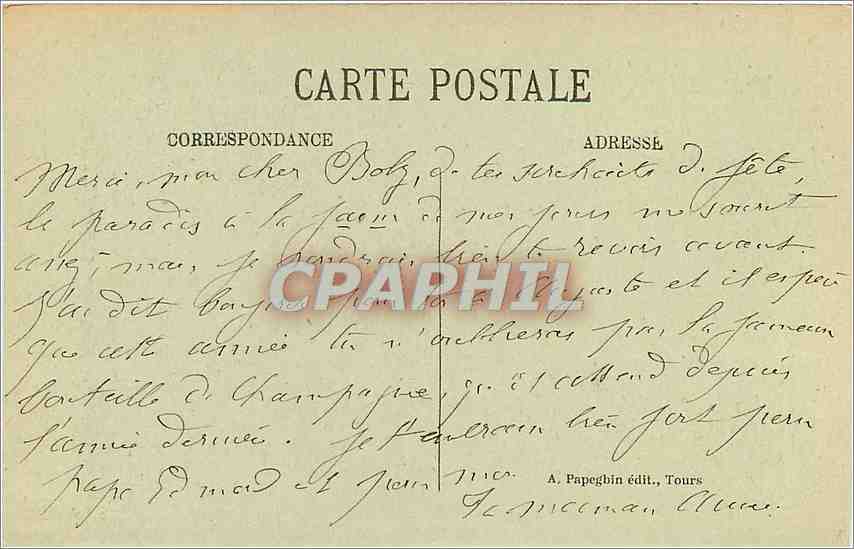 CARTE POSTALE
CORRESPONDANCE
ADRESSE
Merci, mon cher Boby, de tes souhaits de fête,
le paradis à la de mes jours me sourit
assez, mais je voudrais bien te revoir avant.
J'ai dit bonjour pour toi à et il espère
que cette année tu n'oublieras pas la fameuse
bouteille de Champagne, qu'il attend depuis
l'année dernière. Je t'embrasse bien fort pour
papa Edmond et pour moi.
Ta maman Anne.
A. Papeghin édit., Tours
CPAPHIL